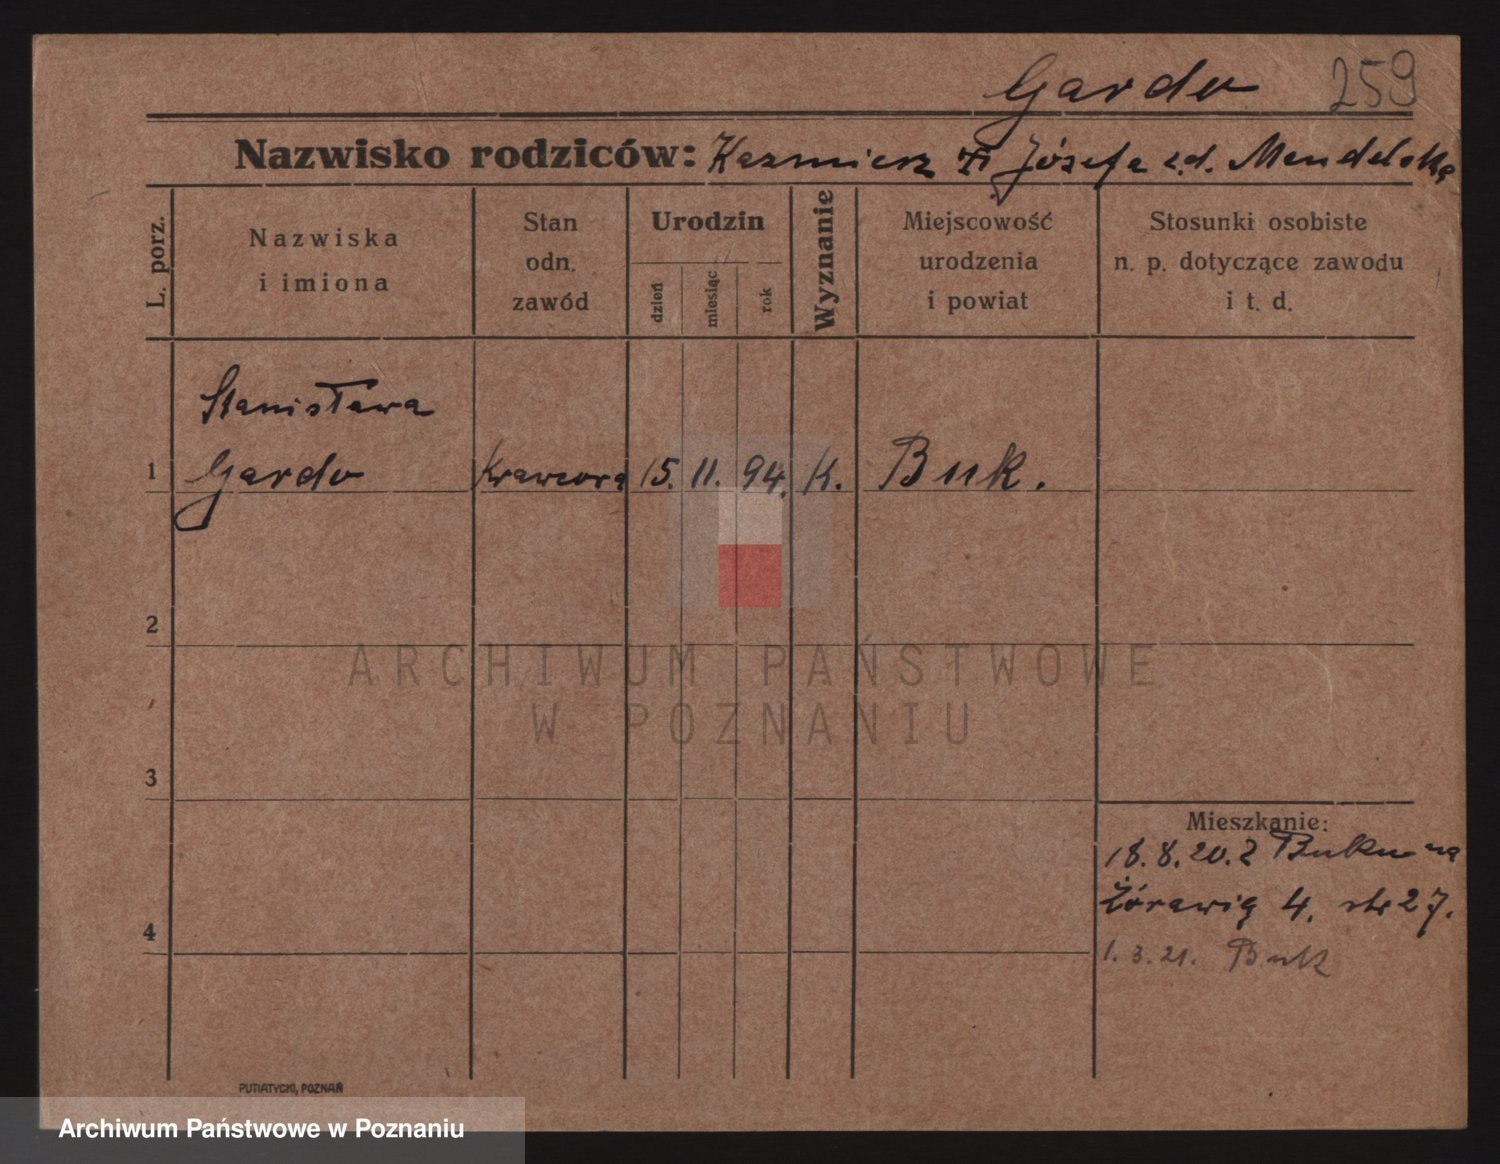 Gardo 259
Nazwisko rodziców: Kazmierz Józefa z.d. Mendelska
L. porz.
Nazwiska
i imiona
Stan
odn.
zawód
Urodzin
dzień
miesiąc
rok
Wyznanie
Miejscowość
urodzenia
i powiat
Stosunki osobiste
n. p. dotyczące zawodu
i t. d.
Stanisława
1 Gardo Krawcowa 15. 11. 94. K. Buk.
2
ARCHIWUM PAŃSTWOWE
W POZNANIU
3
Mieszkanie:
18.8.20. z Buku na
4
Żórawią 4. str 27.
1.3.21. Buk
PUTIATYCKI, POZNAŃ
Archiwum Państwowe w Poznaniu